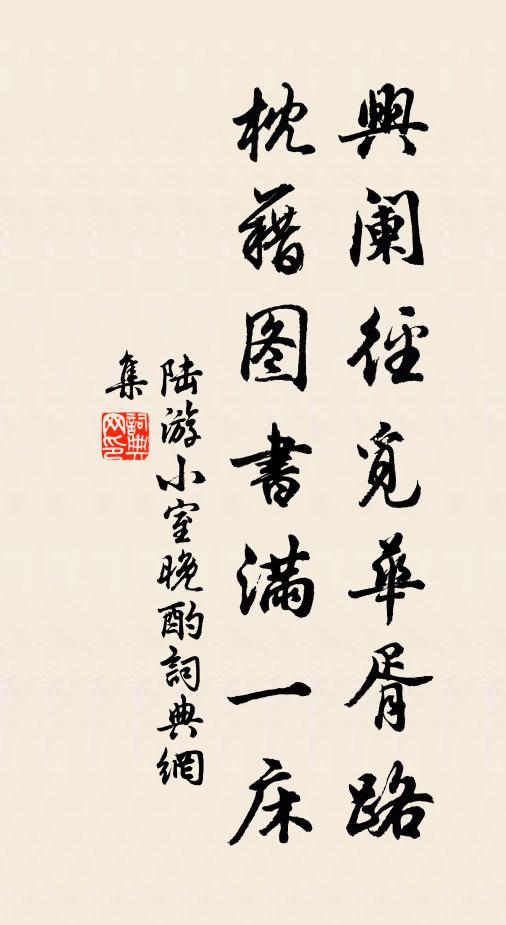 興阑徑覓華胥路
枕藉图書满一床
陆游小室晚酌詞典網
集
詞典
网印